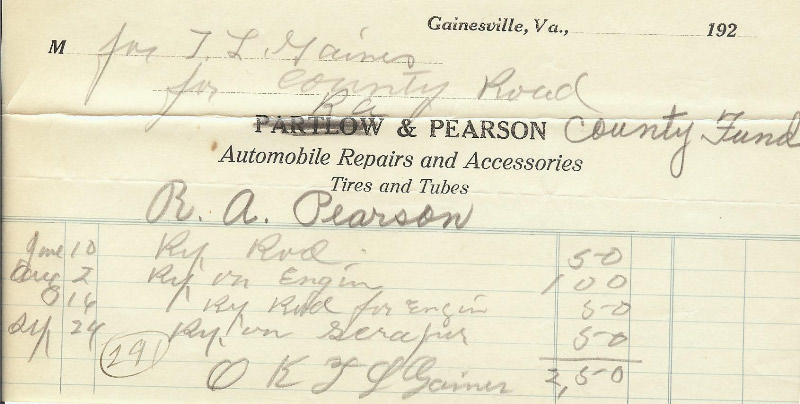 Gainesville, Va., 192
M for T. L. Gaines
for County Road
R a
PARTLOW & PEARSON County Fund
Automobile Repairs and Accessories
Tires and Tubes
R. A. Pearson
June 10 Rp Rod 50
Aug 2 Rp on Engin 100
" 16 Rp Rod for Engin 50
Sep 24 Rp. on Scraper 50
291
O K T L Gaines 2,50